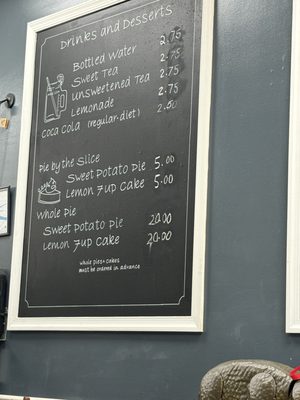 Drinks and Desserts
Bottled Water 2.75
Sweet Tea 2.75
Unsweetened Tea 2.75
Lemonade 2.75
Coca Cola (regular-diet) 2.50
Pie by the Slice
Sweet Potato Pie 5.00
Lemon 7up Cake 5.00
Whole Pie
Sweet Potato Pie 20.00
Lemon 7up Cake 20.00
whole pies+cakes
must be ordered in advance